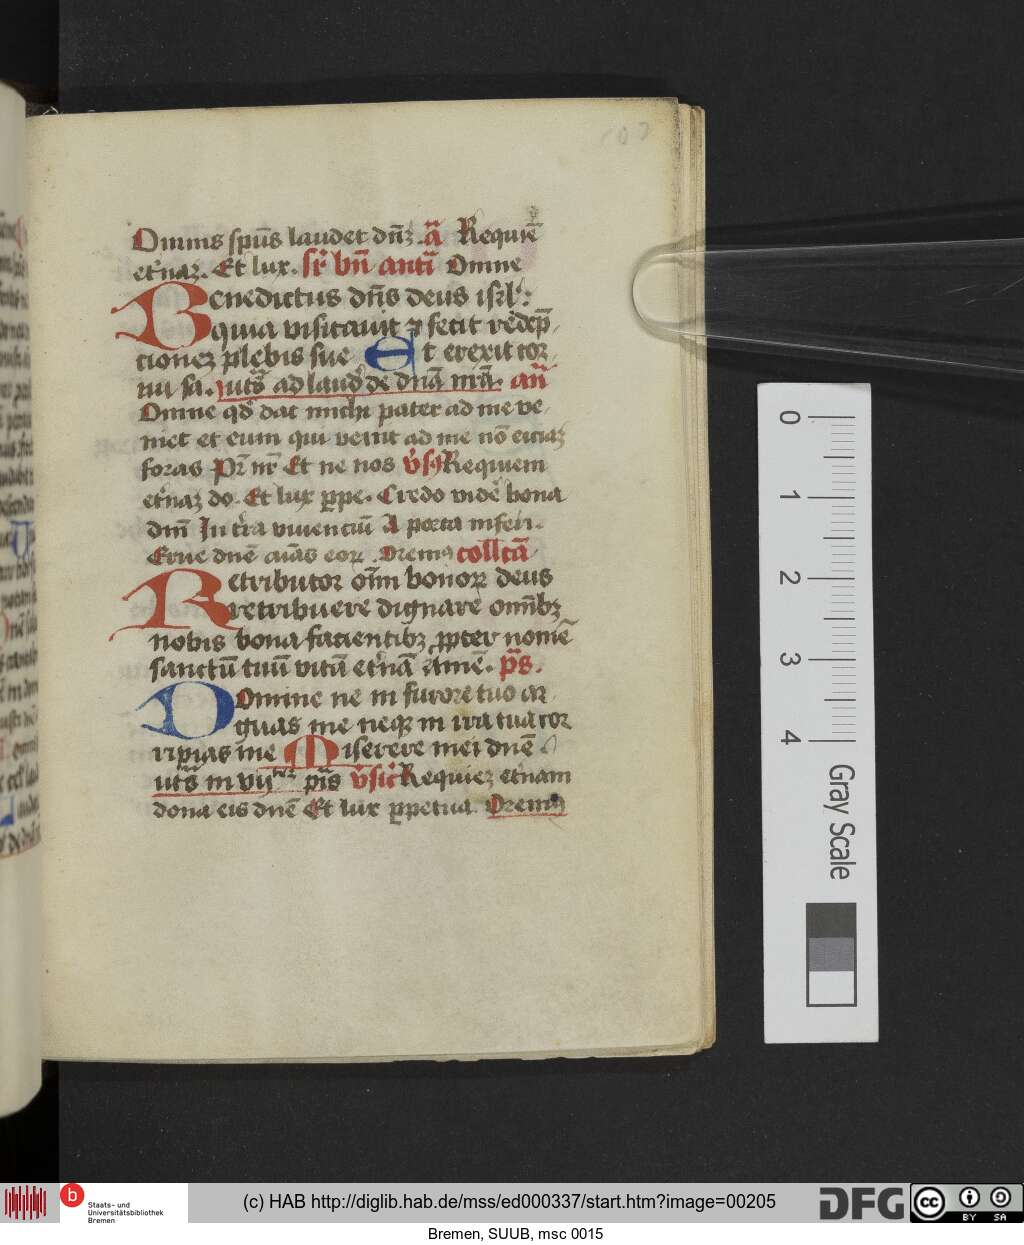 Omnis spūs laudet dn̄ʒ. a᷑ Requiē
et'naʒ. Et lux. sr̄ bn̄ antī Omne
Benedictus dn̄s deus isrl':
quia visitauit ⁊ fecit redēp̄
tioneʒ plebis sue Et erexit cor
nu sa. uts̄ ad laud' de dn̄a nr̄a. an̄
Omne qd' dat michi pater ad me ve
niet et eum qui venit ad me nō eiciaʒ
foras Pr̄ nr̄ Et ne nos v̄sꝰ Requiem
et'naʒ do. Et lux ꝑpe. Credo videꝰ bona
dn̄i In t'ra viuenciū A porta inferi.
Erue dne᷑ aīas eoꝝ. Oremꝰ collc̄a
Retributor oīm bonoꝝ deus
retribuere dignare oīmbʒ
nobis bona facientibʒ ꝓpter nomē
sanctū tuū vitā et'nā Amē. ps̄.
Domine ne in furore tuo ar
guas me neqꝫ in ira tua cor
ripias me Miserere mei dnē
uts̄ in vij pīs v̄sic' Requieʒ et'nam
dona eis dnē Et lux ꝑpetua. Oremꝰ
0
1
2
3
4
Gray Scale
b Staats- und
Universitätsbibliothek
Bremen
(c) HAB http://diglib.hab.de/mss/ed000337/start.htm?image=00205
DFG
cc BY SA
Bremen, SUUB, msc 0015